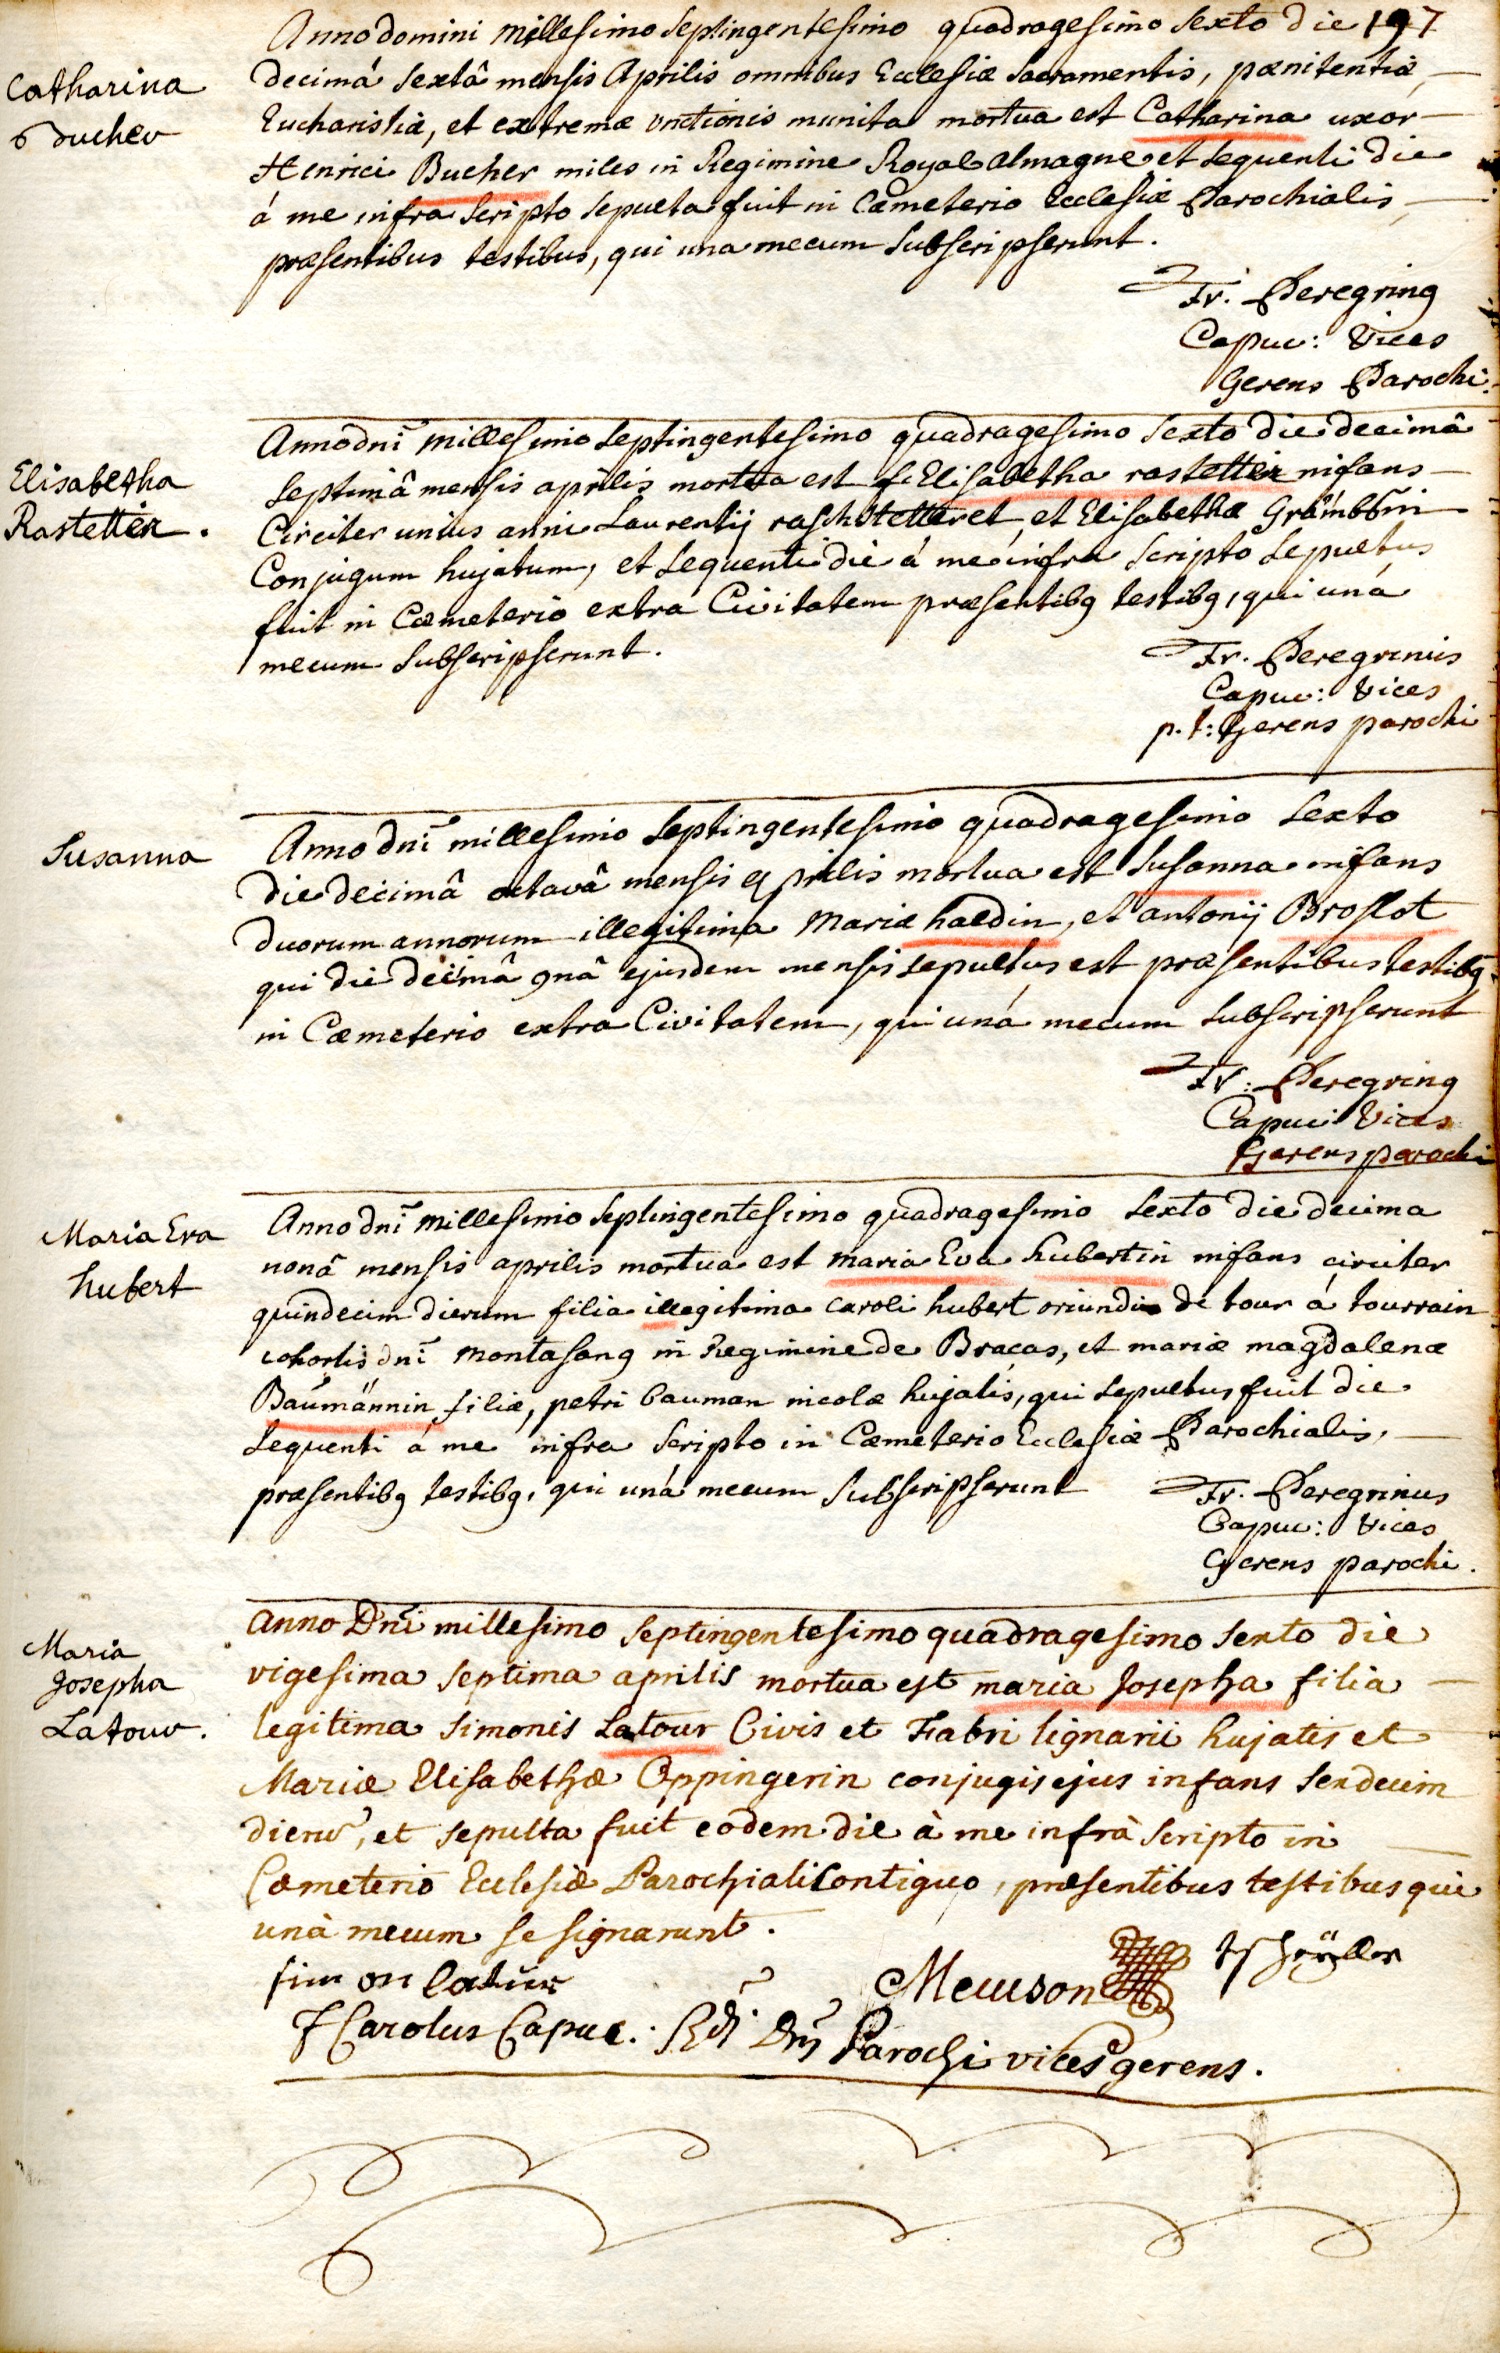 197
Anno domini millesimo septingentesimo quadragesimo sexto die
Catharina
Bucher
decimá sextâ mensis Aprilis omnibus Ecclesiæ sacramentis, pænitentiæ,
Eucharistiæ, et extremæ unctionis munita mortua est Catharina uxor
Henrici Bucher miles in Regimine Royal almagne et sequenti die
á me infra scripto sepulta fuit in Cæmeterio Ecclesiæ Parochialis
præsentibus testibus, qui una mecum subscripserunt.
Fr. Peregrin9
Capuc: Vices
Gerens Parochi.
Elisabetha
Rastetter.
Anno dni millesimo septingentesimo quadragesimo sexto die decimâ
septimâ mensis aprilis mortua est Elisabetha rastetter infans
Circiter unius anni Laurentij et Elisabethæ
Conjugum hujatum, et sequenti die á me infra scripto sepultus
fuit in Cæmeterio extra Civitatem præsentib9 testib9, qui una
mecum subscripserunt.
Fr. Peregrinus
Capuc: Vices
p. t: Gerens parochi
Susanna
Anno dni millesimo septingentesimo quadragesimo sexto
die decimâ octavâ mensis aprilis mortua est Susanna infans
duorum annorum illegitima Mariæ haedin, et antonij Broslot
qui die decimâ 9nâ ejusdem mensis sepultus est præsentibus testib9
in Cæmeterio extra Civitatem, qui uná mecum subscripserunt
Fr: Peregrin9
Capuc: Vices
Gerens parochi
Maria Eva
hubert
Anno dni millesimo septingentesimo quadragesimo sexto die decima
nonâ mensis aprilis mortua est maria Eva hubertin infans circiter
quindecim dierum filia illegitima caroli hubert oriundi de tour á tourrain
cohortis dni montasang in Regimine de Bracas, et mariæ magdalenæ
Baumännin filiæ, petri bauman incolæ hujatis, qui sepultus fuit die
sequenti á me infra scripto in Cæmeterio Ecclesiæ Parochialis,
præsentib9 testib9, qui uná mecum subscripserunt
Fr. Peregrinus
Capuc: Vices
Gerens parochi.
Maria
Josepha
Latour.
Anno Dni millesimo septingentesimo quadragesimo sexto die
vigesima septima aprilis mortua est maria Josepha filia
legitima Simonis Latour Civis et Fabri lignarii hujatis et
Mariæ Elisabethæ Oppingerin conjugis ejus infans sexdecim
dierū, et sepulta fuit eodem die à me infrà scripto in
Cæmeterio Ecclesiæ Parochiali contiguo, præsentibus testibus qui
unà mecum se signarunt.
simon latur
F Carolus Capuc: Rdi Dni Parochi vices gerens.